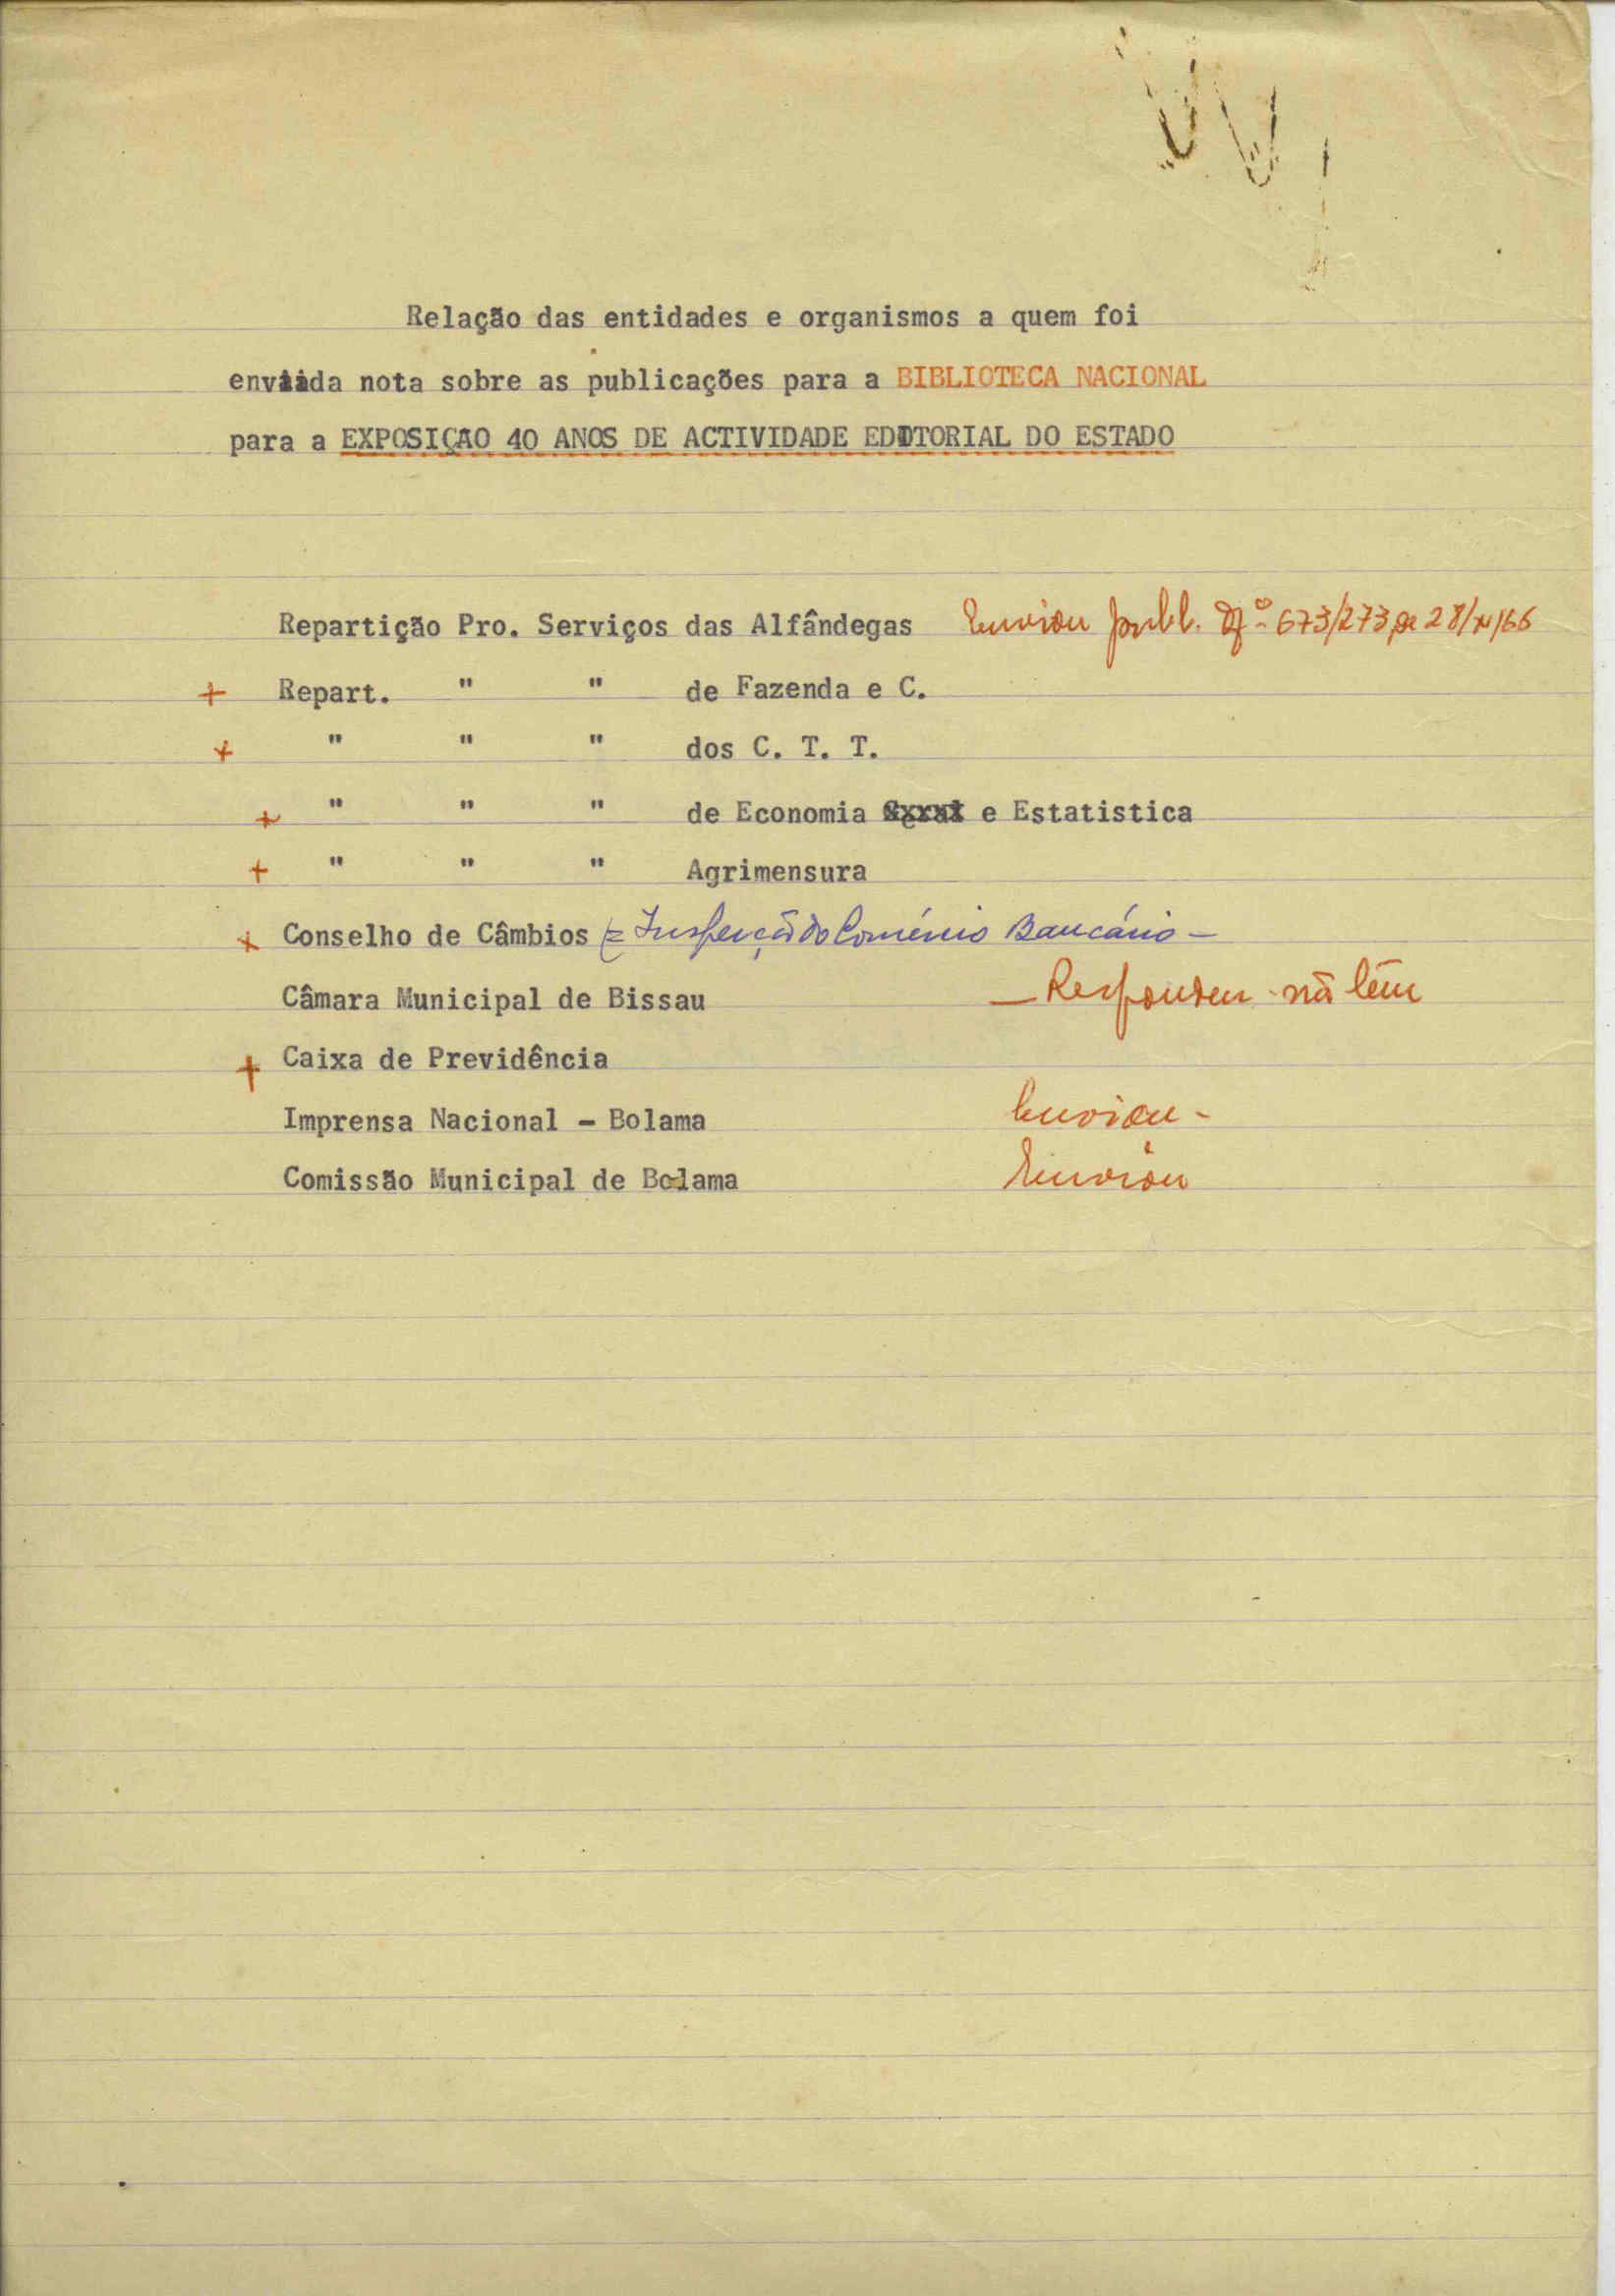 Relação das entidades e organismos a quem foi
enviada nota sobre as publicações para a BIBLIOTECA NACIONAL
para a EXPOSIÇAO 40 ANOS DE ACTIVIDADE EDITORIAL DO ESTADO
Repartição Pro. Serviços das Alfândegas Enviou publ. Of.º 673/273, de 28/XI/66
+ Repart. " " de Fazenda e C.
+ " " " dos C. T. T.
+ " " " de Economia e Estatistica
+ " " " Agrimensura
+ Conselho de Câmbios = Inspecção do Comércio Bancário -
Câmara Municipal de Bissau — Respondeu - não têm
+ Caixa de Previdência
Imprensa Nacional - Bolama Enviou -
Comissão Municipal de Bolama Enviou